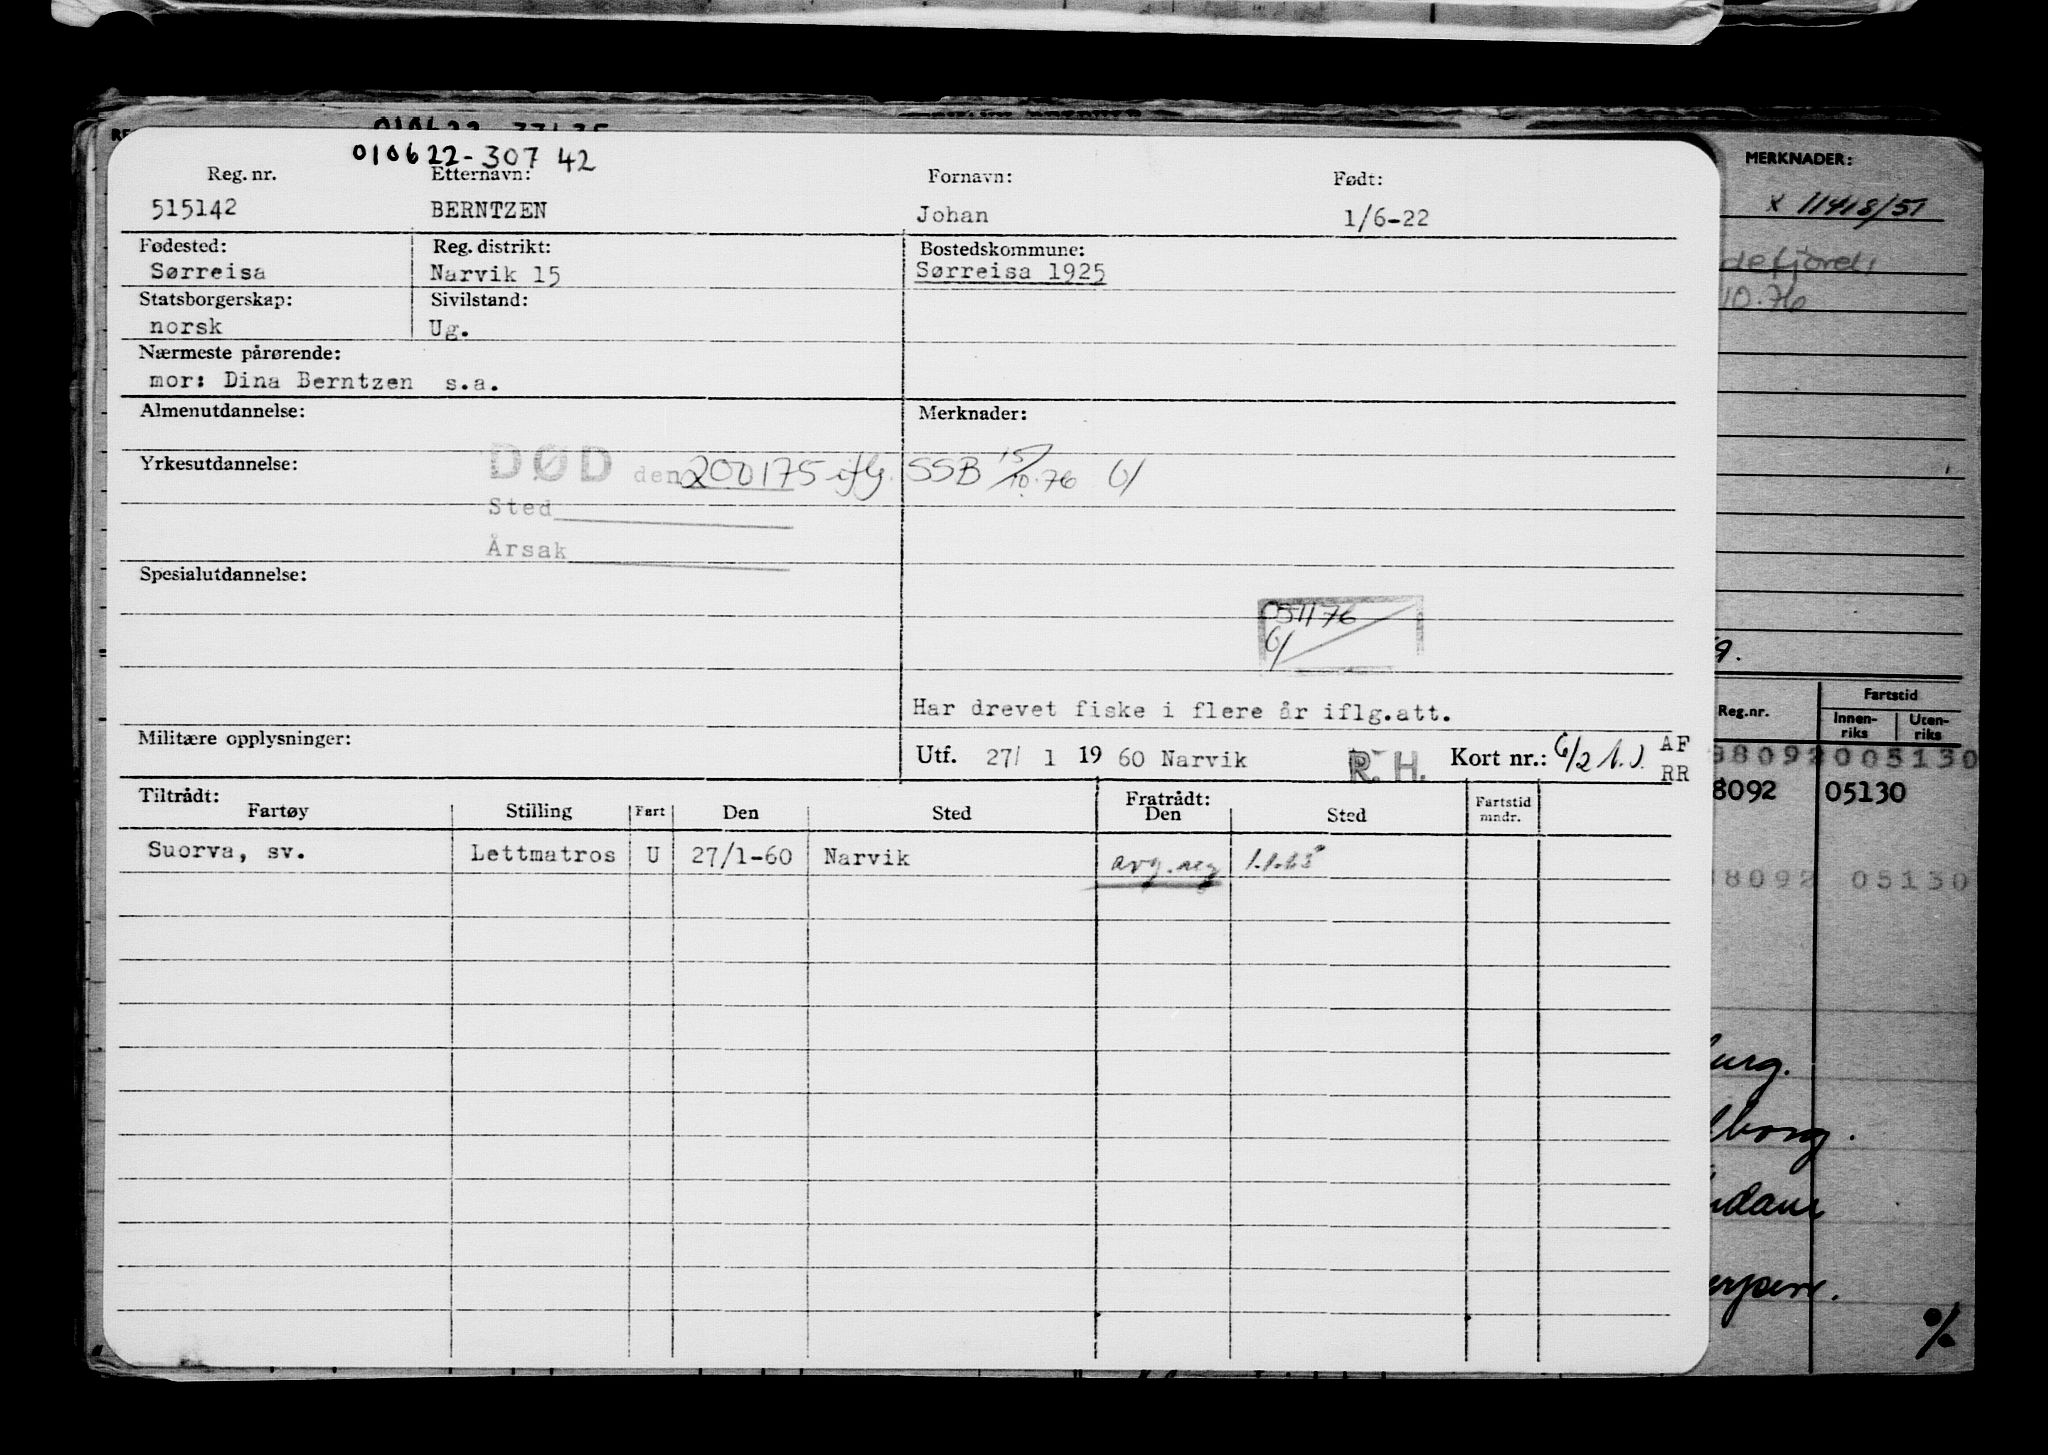 010622-307 42
Reg. nr. Etternavn: Fornavn: Født:
515142 BERNTZEN Johan 1/6-22
Fødested: Reg. distrikt: Bostedskommune:
Sørreisa Narvik 15 Sørreisa 1925
Statsborgerskap: Sivilstand:
norsk Ug.
Nærmeste pårørende:
mor: Dina Berntzen s.a.
Almenutdannelse: Merknader:
Yrkesutdannelse: DØD den 200175 iflg. SSB 15/10.76
Sted
Årsak
Spesialutdannelse:
051176
Har drevet fiske i flere år iflg.att.
Militære opplysninger:
Utf. 27/ 1 19 60 Narvik R. H. Kort nr.: AF
RR
Tiltrådt: Fratrådt:
Fartøy Stilling Fart Den Sted Den Sted Fartstid mndr.
Suorva, sv. Lettmatros U 27/1-60 Narvik avg. 1.1.65
MERKNADER:
x 11418/51
defjord
10.76
9.
Fartstid
Reg.nr. Innen-riks Uten-riks
8092 005130
8092 05130
8092 05130
urg.
lborg.
%